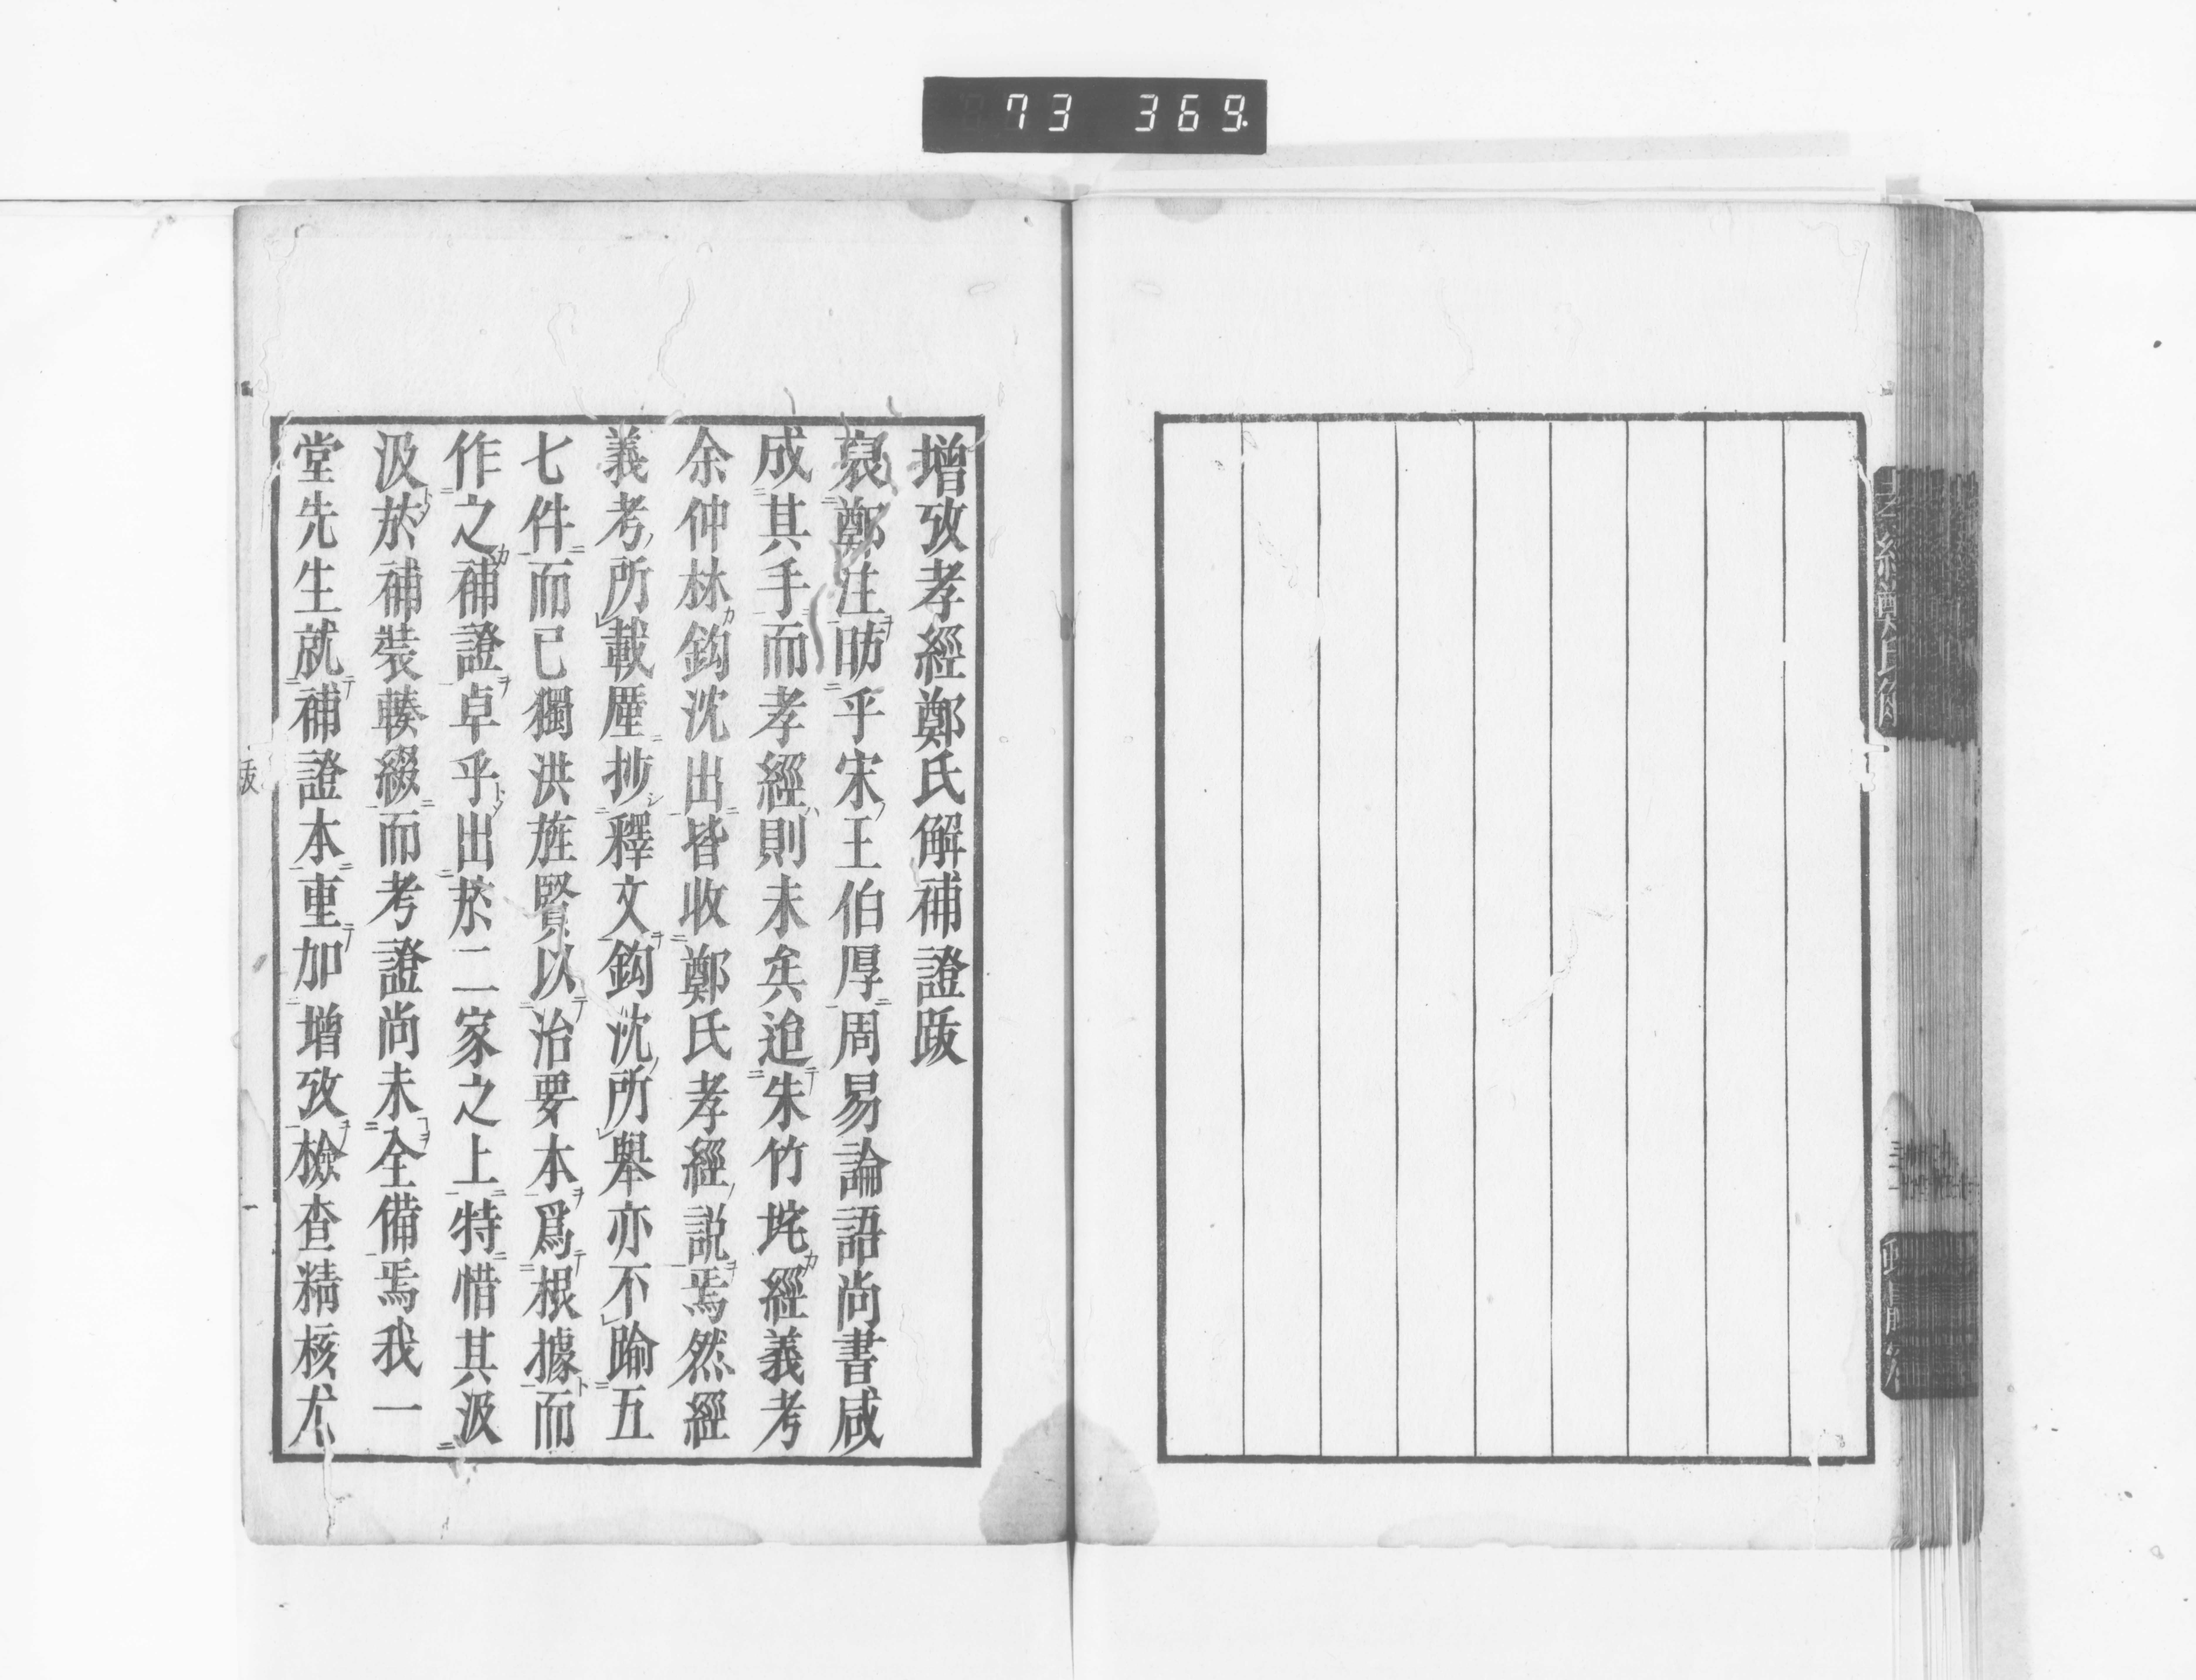 73 369.
增攷孝經鄭氏解補證跋
裒鄭注昉乎宋王伯厚周易論語尚書咸
成其手而孝經則未矣迨朱竹垞經義考
余仲林鈎沈出皆收鄭氏孝經説焉然經
義考所載厪抄釋文鈎沈所舉亦不踰五
七件而已獨洪旌賢以治要本爲根據而
作之補證卓乎出於二家之上特惜其汲
汲於補裝輳綴而考證尚未全備焉我一
堂先生就補證本重加增攷檢查精核尤
跋